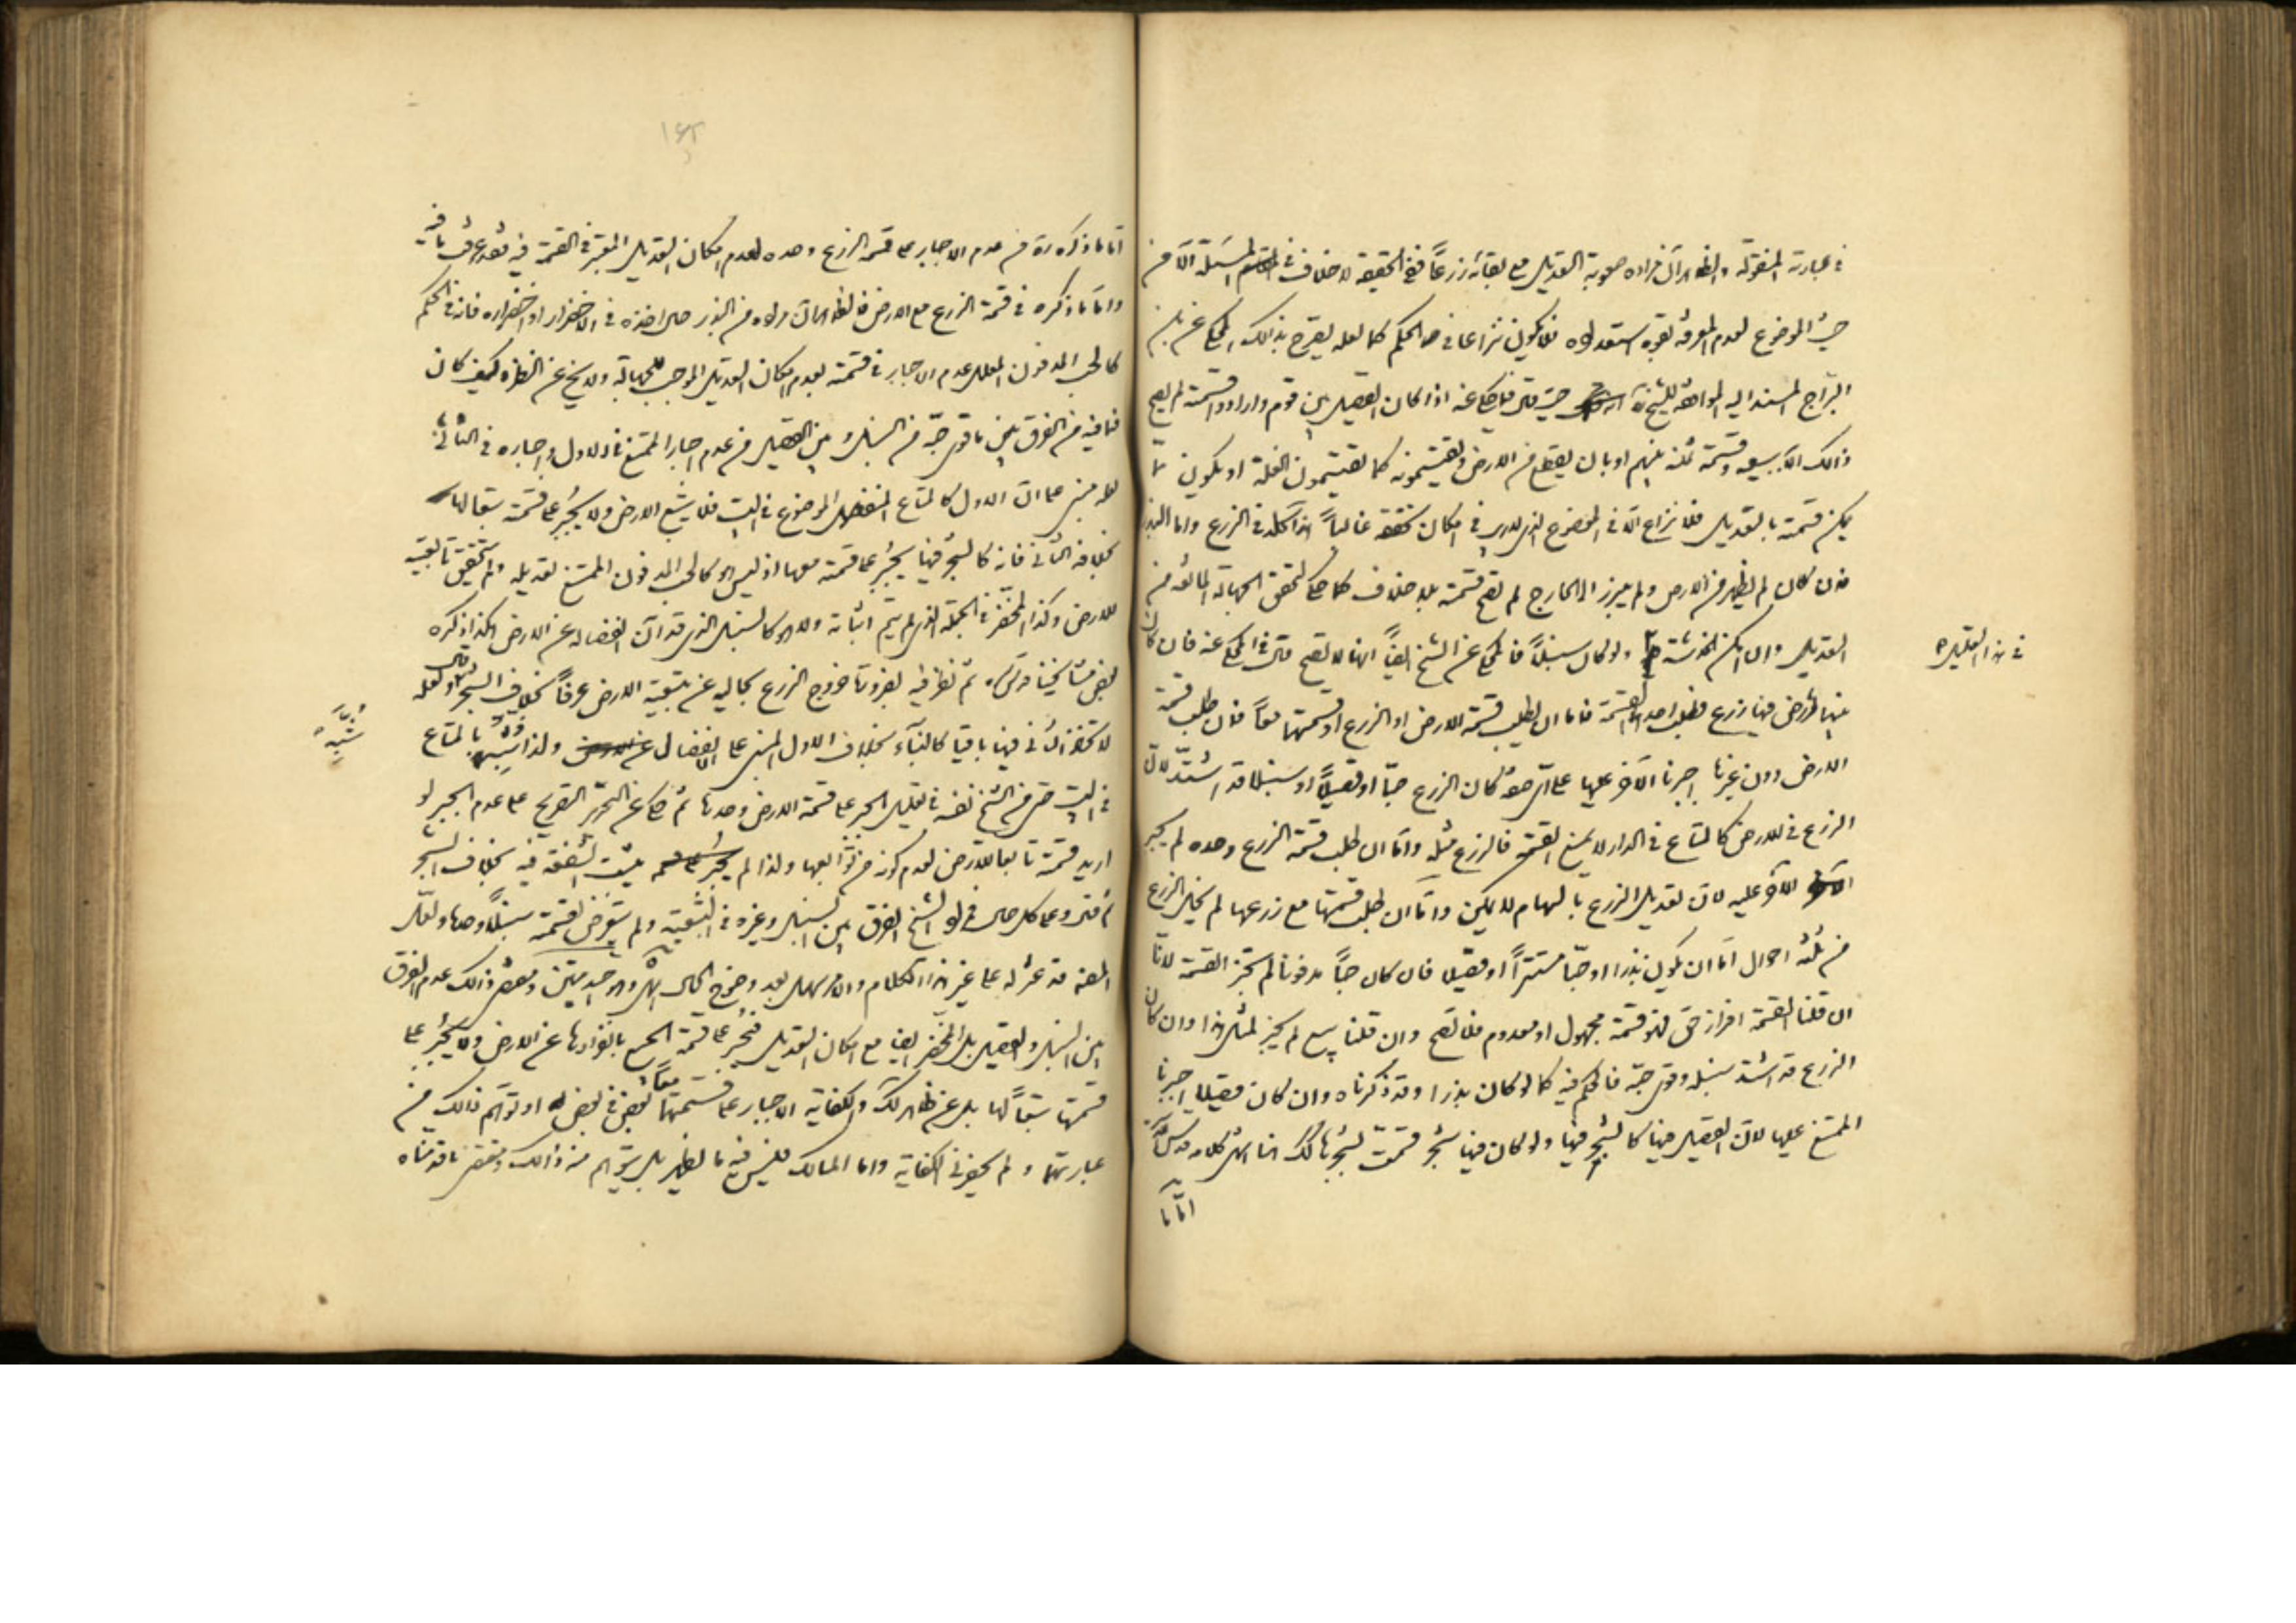 في عبارته المنقولة والظاهر ان مراده صعوبة التعديل مع بقائه زرعاً ففي الحقيقة لا خلاف في المسئلة الا من
حيث الموضوع لعدم المعرفة بتقويم فلا يكون نزاعا في الحكم كما لعله يصرح بذلك المحكي عن ابن
البراج المستند اليه الموافقة للشيخ حيث قال فيما حكي عنه اذا كان الفصيل بين قوم وارادوا قسمته لم يصح
ذلك الا ببيعه وقسمة ثمنه بينهم او بان يقطع من الارض ويقتسمونه كما يقتسمون الغلة او يكون مما
يمكن قسمته بالتعديل فلا نزاع الا في الموضوع الذي لا ريب في امكان تحققه غالباً هذا كله في الزرع واما البذر
فان كان لم يظهر من الارض ولم يبرز الى الخارج لم تصح قسمته بلا خلاف كما حكي لتحقق الجهالة المانعة من
التعديل وان امكن الخدشة ولو كان سنبلاً فالمحكي عن الشيخ ايضاً انها لا تصح قال في المحكي عنه فان كان
في هذا التعليل
بينهما ارض فيها زرع فطلب احدهما القسمة فاما ان يطلب قسمة الارض او الزرع او قسمتهما معاً فان طلب قسمة
الارض دون غيرها اجبرنا الآخر عليها على اي صفة كان الزرع حبّا او قصيلاً او سنبلا قد اشتدّ لانّ
الزرع في الارض كالمتاع في الدار لا يمنع القسمة فالزرع مثله وامّا ان طلب قسمة الزرع وحده لم يجبر
الآخر عليه لان تعديل الزرع بالسهام لا يمكن وامّا ان طلب قسمتها مع زرعها لم يخل الزرع
من ثلثة احوال امّا ان يكون بذرا او حبّا مستتراً او قصيلا فان كان حبّاً مدفونا لم تجز القسمة لانّا
ان قلنا القسمة افراز حق فهو قسمة مجهول او معدوم فلا تصح وان قلنا بيع لم يجز لمثل هذا وان كان
الزرع قد اشتد سنبله وقوى حبّه فالحكم فيه كما لو كان بذرا وقد ذكرناه وان كان قصيلا اجبرنا
الممتنع عليها لانّ القصيل فيها كالشجر فيها ولو كان فيها شجر قسمت بشجرها كذلك هنا انتهى كلامه قدس سره
امّا ما
امّا ما ذكره من عدم الاجبار على قسمة الزرع وحده لعدم امكان التعديل المعتبر في القسمة فيه فقد عرفت ما فيه
وامّا ما ذكره في قسمة الزرع مع الارض فالظاهر ان مراده من البذر حال اخذه في الاخضرار او اخضراره فانه في الحكم
كالحب المدفون المعلل عدم الاجبار في قسمته بعدم امكان التعديل الموجب للجهالة ولا يخ عن النظر كيف كان
فما فيه من الفرق بين ما قوى حبّه من السنبل وبين القصيل من عدم اجبار الممتنع في الاول واجباره في الثاني
لعله مبني على انّ الاول كالمتاع المنفصل الموضوع في البيت فلا يتبع الارض ولا يجبر على قسمته تبعا لها
بخلاف الثاني فانه كالشجر فيها يجبر على قسمته معها اذ ليس هو كالحب المدفون الممتنع تعديله ولم تتحقق تابعيّته
للارض وكذا المخضر في الجملة الذي لم يتم انباته ولا هو كالسنبل الذي قد آن انفصاله عن الارض هكذا ذكره
بعض مشايخنا قدس سره ثم نظر فيه بضرورة خروج الزرع بحاليه عن تبعيّة الارض عرفاً بخلاف الشجر قال ولعله
لا تخاذ الثاني فيها باقيا كالبناء بخلاف الاول المبني على الانفصال ولذا شبّهه بالمتاع
شبَّهَهُ
في البيت حتى من الشيخ نفسه في تعليل الجبر على قسمة الارض وحدها ثم حكي عن التحرير التصريح على عدم الجبر لو
اريد قسمته تابعا للارض لعدم كونه من توابعها ولذا لم تثبت الشفعة فيه بخلاف الشجر
ثم قال وعلى كل حال ففي الشيخ الفرق بين السنبل وغيره في التبعيّة ولم يتعرّض لقسمته سنبلاً وحدها ولعلّ
المصنف قد عثر له على غير هذا الكلام والامر سهل بعد وضوح الحال انتهى وهو جيد متين ومقتضى ذلك عدم الفرق
بين السنبل والقصيل بل المخضر ايضا مع امكان التعديل فيجبر على قسمة الجميع بانفرادها عن الارض ولا يجبر على
قسمتها تبعاً لها بل عن ظاهر لك والكفاية الاجبار على قسمتهما معاً بعض في بعض او توهّم ذلك من
عبارتهما ولم يحضرني الكفاية واما المسالك فليس فيه ما يظهر بل يتوهم منه ذلك ومقتضى ما قدمناه